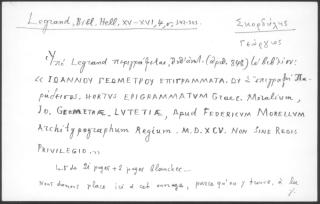 Legrand, Bibl. Hell. XV-XVI, 4, σ. 
Σκορδύλης
Γεώργιος
Ὑπὸ Legrand περιγράφεται, (ἀριθ. 848) τὸ βιβλίον:
« ΙΩΑΝΝΟΥ ΓΕΩΜΕΤΡΟΥ ΕΠΙΓΡΑΜΜΑΤΑ. ἐπιγραφῇ Πα-
ράδεισος. HORTUS EPIGRAMMATUM Graec. Moralium,
IO. GEOMETRAE. LUTETIAE, Apud FEDERICUM MORELLUM
Architypographum Regium. M.D.XCV. NON SINE REGIS
PRIVILEGIO. »
In-8 de 21 pages + 2 pages blanches.
Nous donnons place ici à cet ouvrage, parce qu'on y trouve, à la